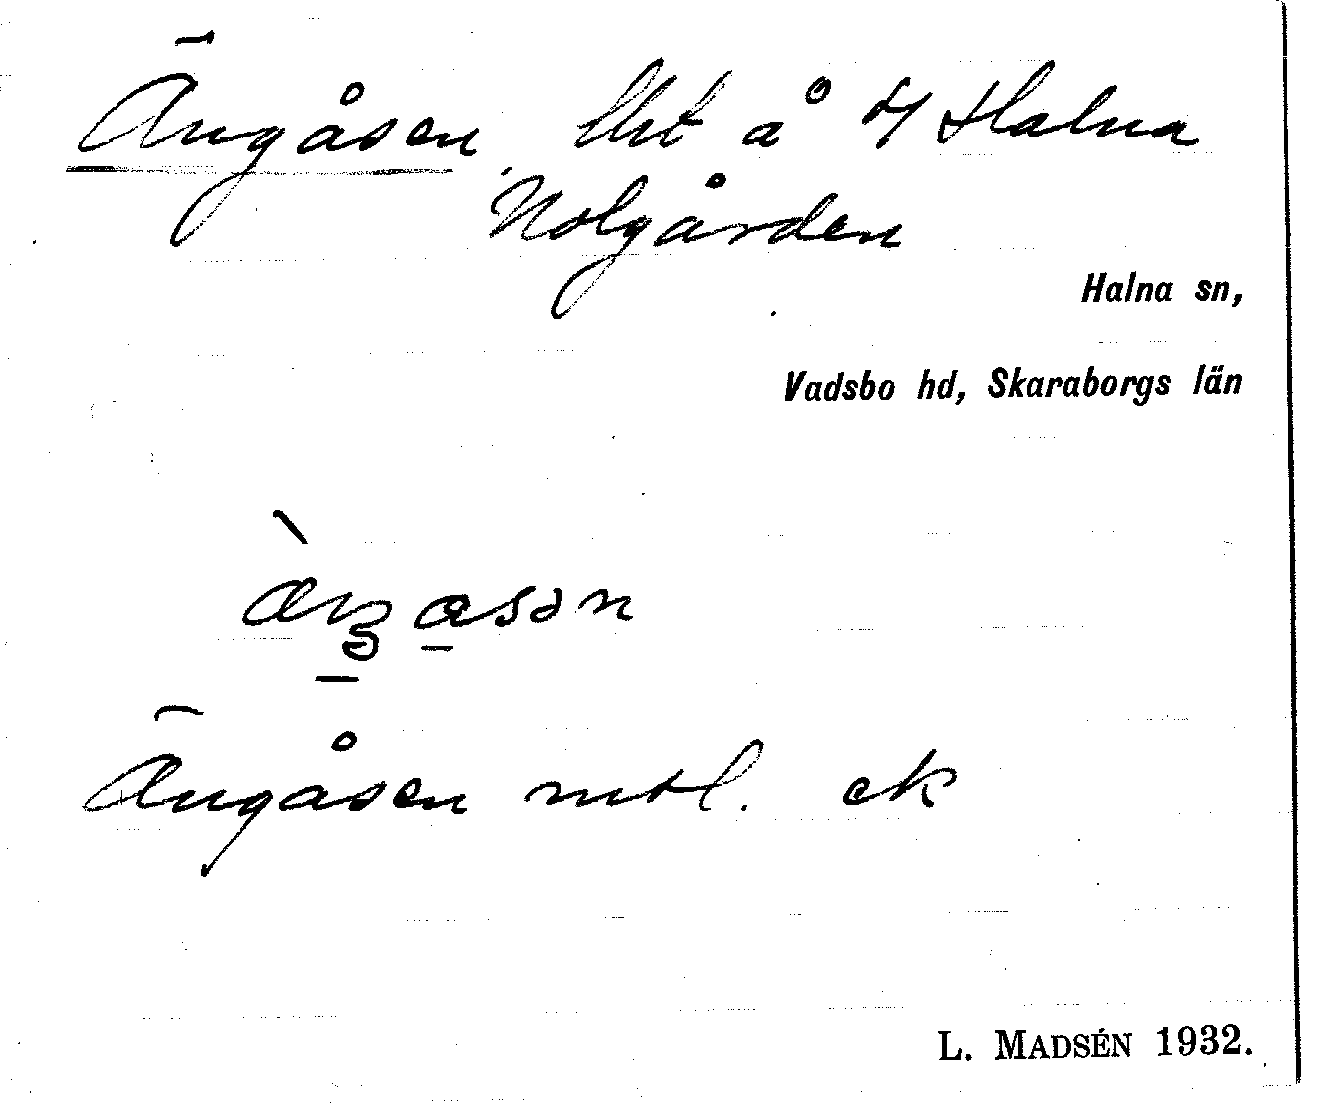 Ängåsen, lht å 4/ Halna
Nolgården
Halna sn,
Vadsbo hd, Skaraborgs län
Ängåsen mtl. ek
L. MADSÉN 1932.